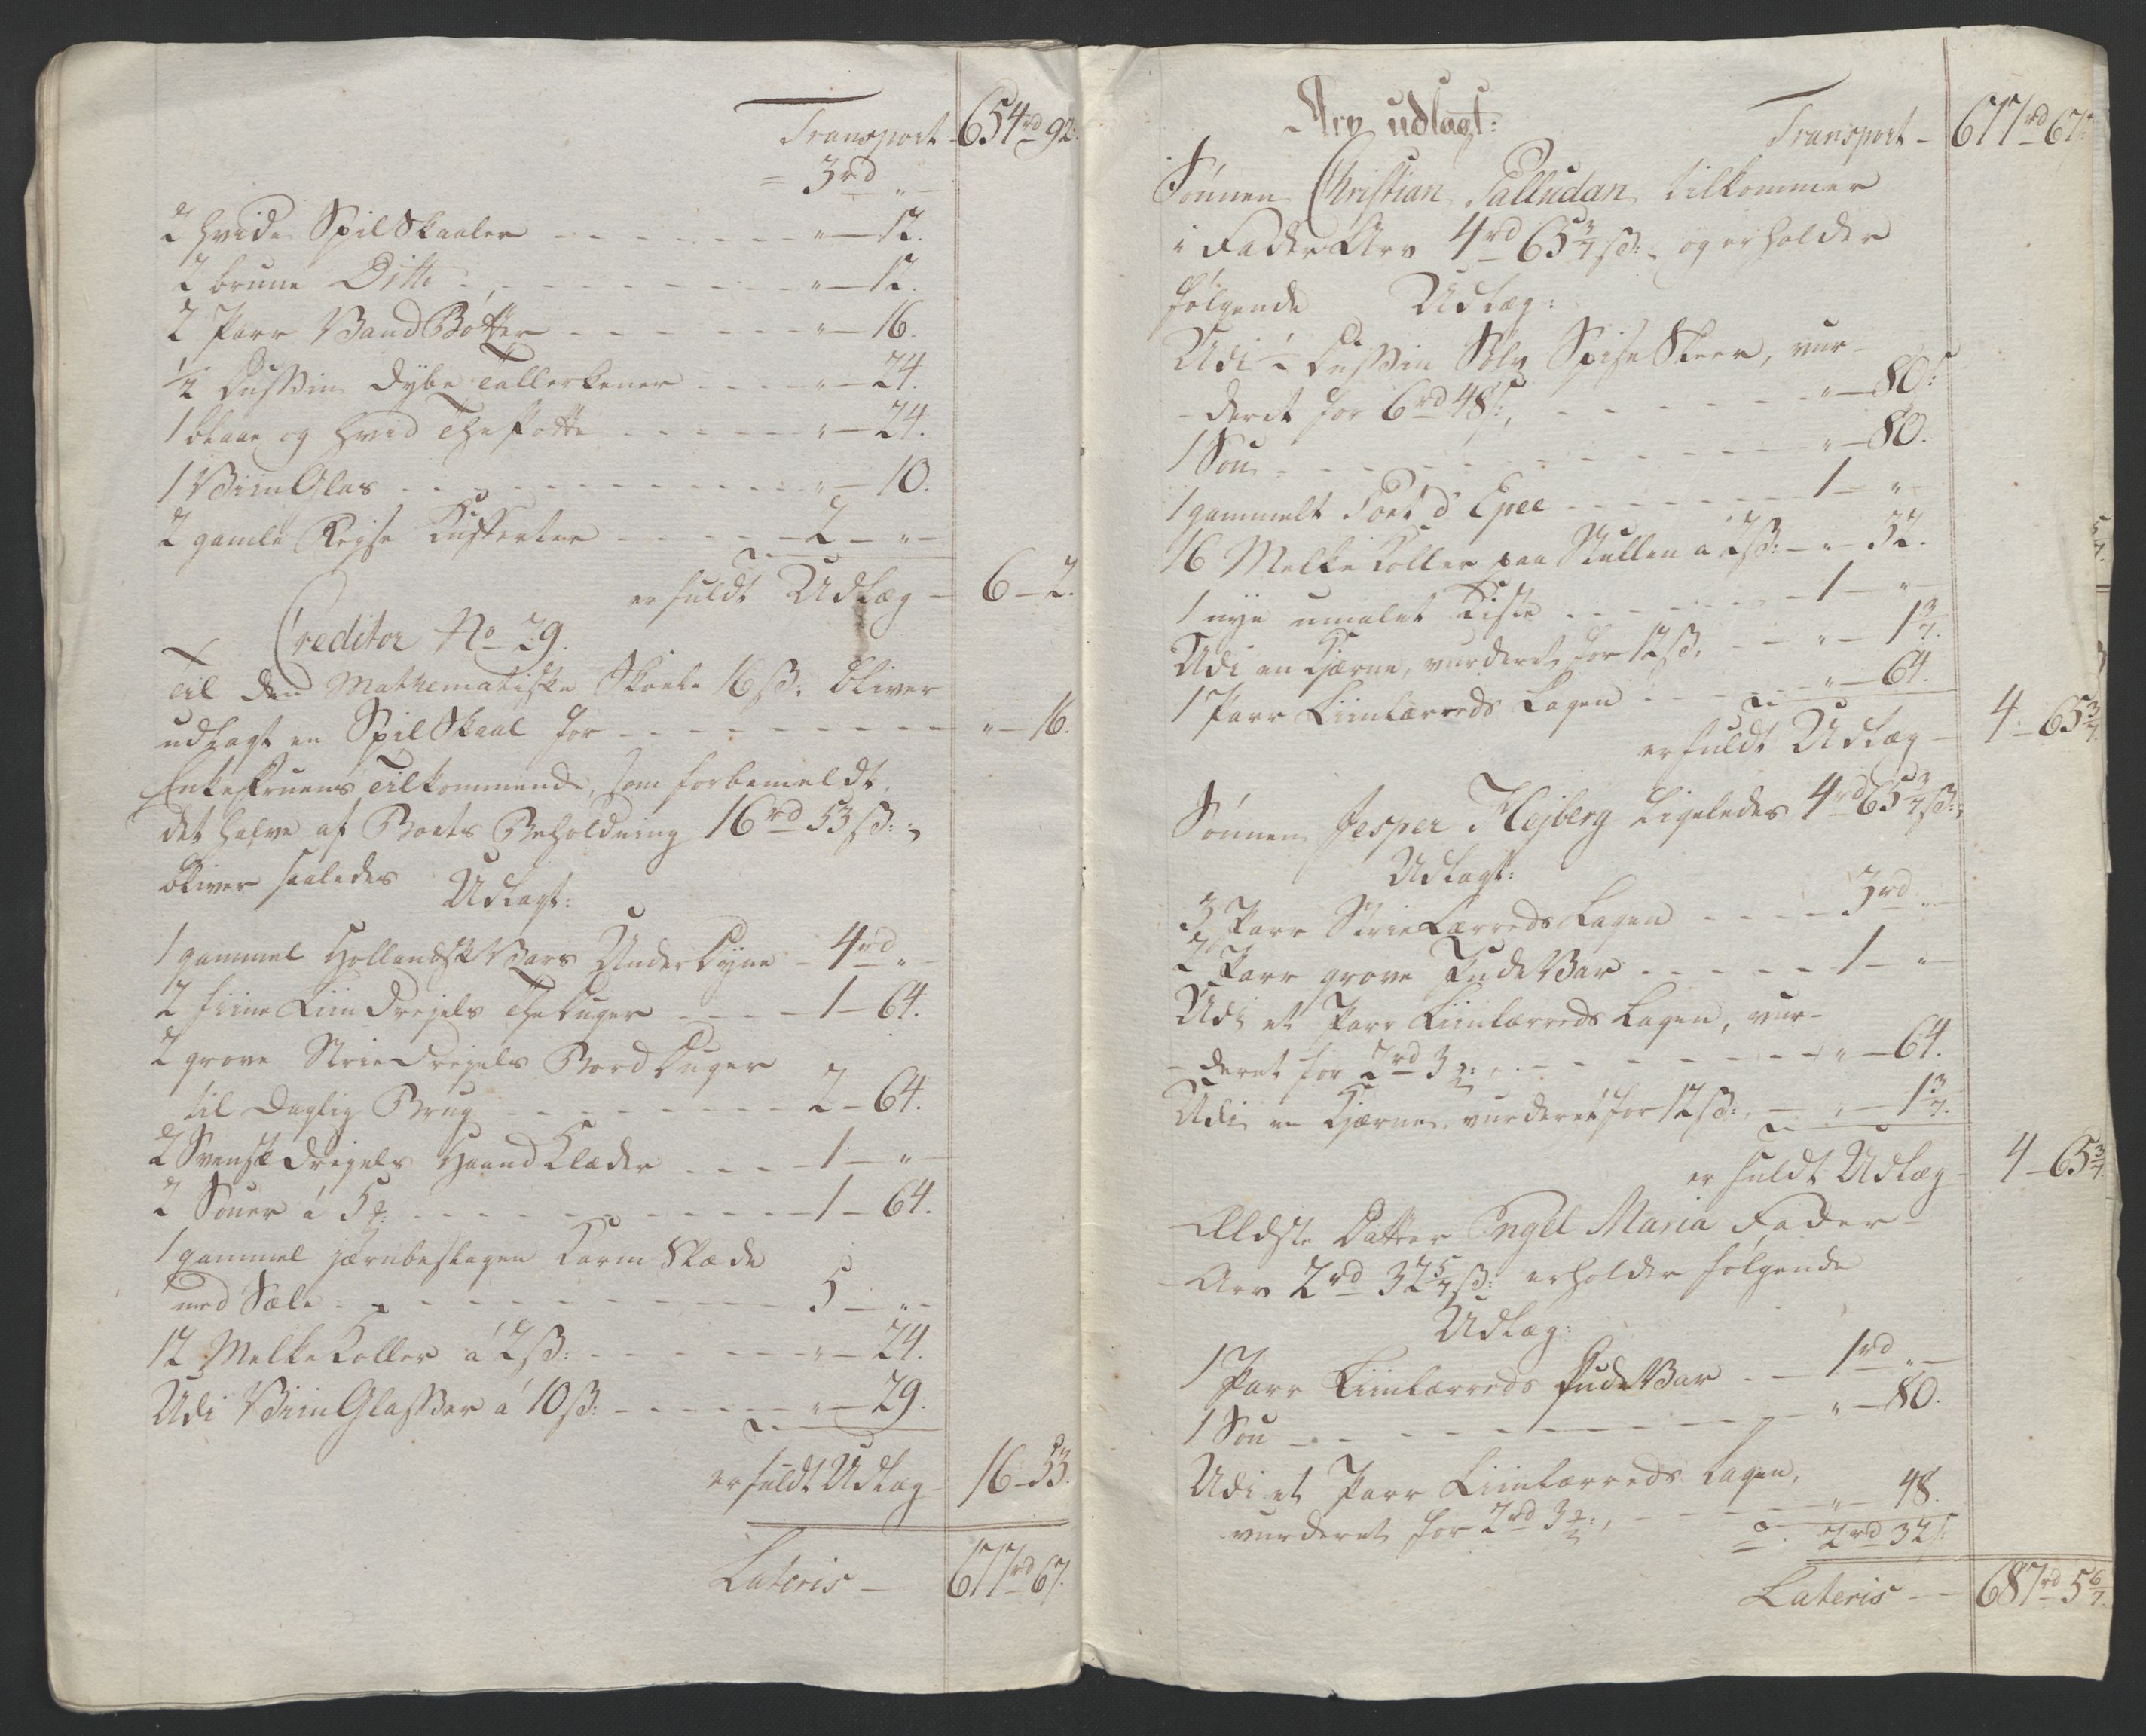 Transport - 654rd 92.
= 3rd " -
2 hvide Spilskaaler - - - " - 12.
2 brune Ditto - - - " - 12.
2 Parr Vand Bøtter - - - " - 16.
1/2 Dussin dybe Tallerkener - - - " - 24.
1 blaae og hvid Thepotte - - - " - 24.
1 Viin Glas - - - " - 10.
2 gamle Reyse Kufferter - - - 2 - " -
er fuldt Udlæg - 6 - 2.
Creditor No 29.
Til den Mathematiske Skoele 16 ß: bliver
udlagt en Spilskaal for - - - " - 16.
Enkefruens Tilkommende, som forbemeldt,
det halve af Boets Beholdning 16rd 53 ß:,
bliver saaledes Udlagt:
1 gammel Hollandsk Vars Underdyne - 4rd " -
2 fiine Liin Dreyels Theduger - - - 1 - 64.
2 grove Strie Dreyels Bord Duger
til daglig Brug - - - 2 - 64.
2 Svensk Dreyels Haand Klæder - - - 1 - " -
2 Souer á 5 ℳ: - - - 1 - 64.
1 gammel jærnbeslagen Karm Slæde
med Sæle - - - 5 - " -
12 Melke Koller á 2 ß: - - - " - 24.
Udi Viin Glasser á 10 ß: - - - " - 29.
er fuldt Udlæg - 16 - 53.
Lateris - 677rd 67.
Arv udlagt:
Transport - 677rd 67.
Sønnen Christian Palludan tilkommer
i Fader Arv 4rd 65 3/7 ß:, og erholder
følgende Udlæg:
Udi 1/2 Dussin Sølv Spise Skeer, vur-
- deret for 6rd 48 ß:, - - - " - 80 ß:
1 Sou - - - " - 80.
1 gammelt Port d' Epee - - - 1 - " -
16 Melke Koller paa Stullen á 2 ß: - " - 32.
1 nye umalet Kiste - - - 1 - " -
Udi en Kjærne, vurderet for 12 ß, - - " - 1 3/7.
1 Parr Liinlærreds Lagen - - - " - 64.
er fuldt Udlæg - 4 - 65 3/7.
Sønnen Jesper Hejberg ligeledes 4rd 65 3/7 ß:,
Udlagt:
3 Parr Strie Lærreds Lagen - - - 3rd " -
2 Parr grove Pude Var - - - 1 - " -
Udi et Parr Liinlærreds Lagen, vur-
- deret for 2rd 3 ℳ:, - - - " - 64.
Udi en Kjærne, vurderet for 12 ß:, - " - 1 3/7.
er fuldt Udlæg - 4 - 65 3/7.
Ældste Datter Engel Maria Fader
Arv 2rd 32 5/7 ß: erholder følgende
Udlæg:
1 Parr Liinlærreds Pude Var - - 1rd " -
1 Sou - - - " - 80.
Udi et Parr Liinlærreds Lagen,
vurderet for 2rd 3 ℳ:, - - - " - 48.
= 2rd 32 ß:
Lateris - - 687rd 5 6/7.